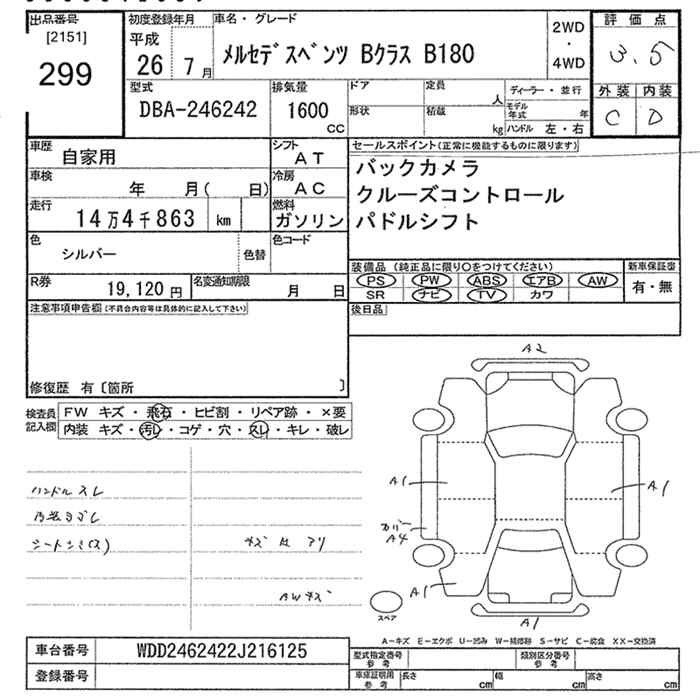 出品番号
[2151]
299
初度登録年月
平成
26 7月
車名・グレード
メルセデスベンツ Bクラス B180
2WD
・
4WD
評価点
3.5
外装 内装
C D
型式
DBA-246242
排気量
1600
CC
ドア
形状
定員
人
積載
kg
ディーラー・並行
モデル年式 年
ハンドル 左・右
車歴
自家用
シフト
AT
車検
年 月( 日)
冷房
AC
走行
14万4千863 km
燃料
ガソリン
色
シルバー
色替
色コード
R券
19,120円
名変通知期限
月 日
セールスポイント(正常に機能するものに限ります)
バックカメラ
クルーズコントロール
パドルシフト
装備品 (純正品に限り○をつけてください)
PS PW ABS エアB AW
SR ナビ TV カワ
新車保証書
有・無
後日品
注意事項申告欄(不具合内容等は具体的に記入して下さい)
修復歴 有〔箇所 〕
検査員記入欄
FW キズ・飛石・ヒビ割・リペア跡・×要
内装 キズ・汚レ・コゲ・穴・スレ・キレ・破レ
ハンドルスレ
内装ヨゴレ
シートシミ(ス)
キズ 凹 アリ
AWキズ
A2
A1
A1
カバー
A4
A1
A1
スペア
A-キズ E-エクボ U-凹み W-補修跡 S-サビ C-腐食 XX-交換済
車台番号
WDD2462422J216125
登録番号
型式指定番号
参考
類別区分番号
参考
車庫証明用
参考
長さ cm 幅 cm 高さ cm